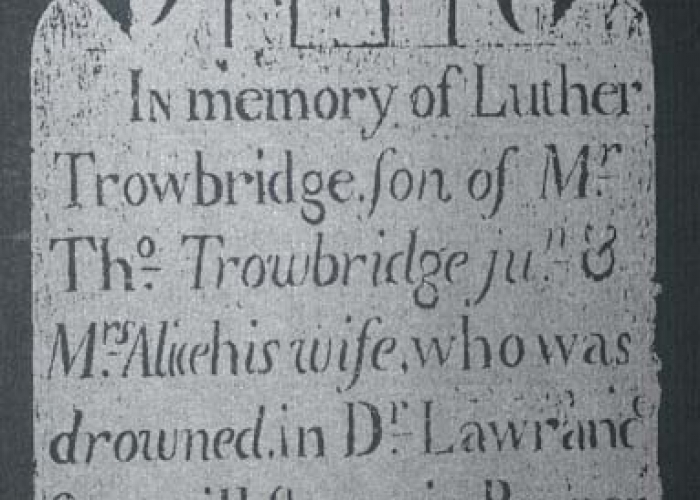 In memory of Luther
Trowbridge. ſon of Mʳ.
Thº. Trowbridge juⁿ. &
Mʳˢ. Alice his wife, who was
drowned. in Dʳ. Lawranc